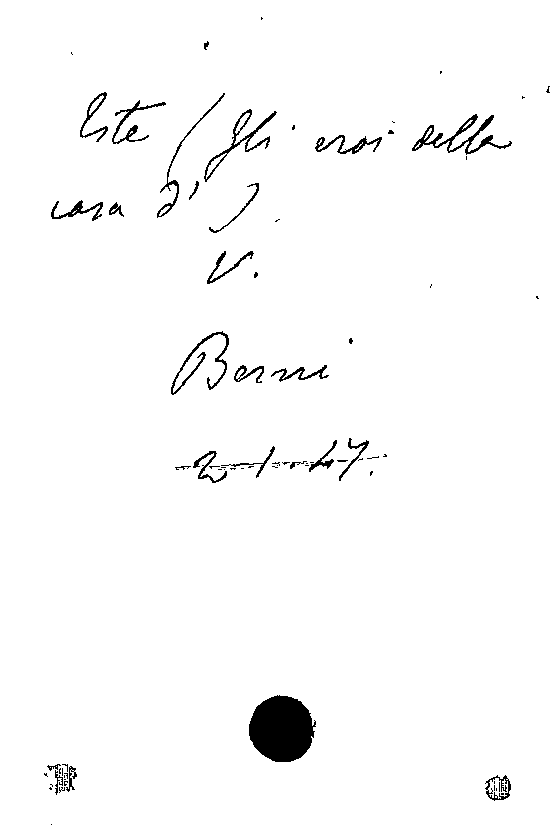 Este (Gli eroi della
casa d')
V.
Berni
2-1-47.